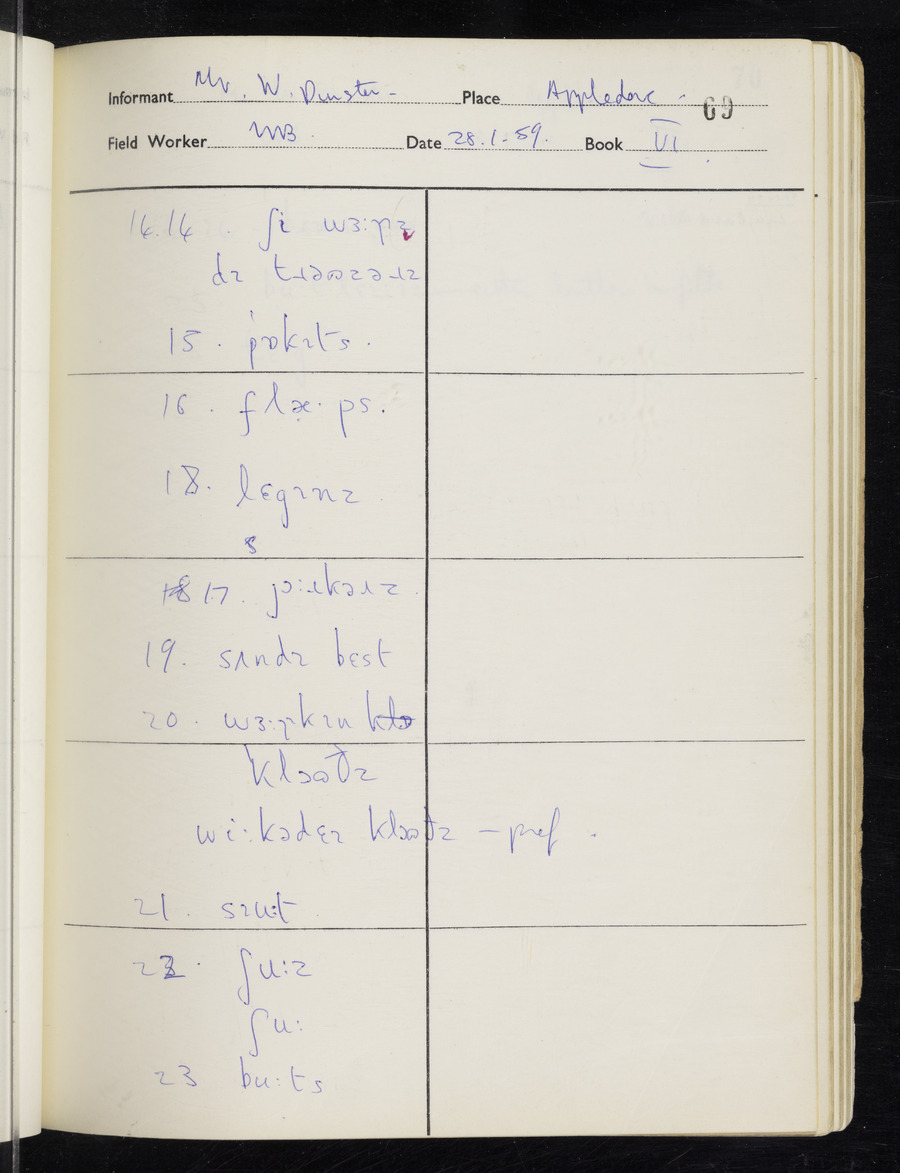 Informant Mr. W. Dunster - Place Appledore. 69
Field Worker MB. Date 28.1.59. Book VI
14.14 . ʃɪ wɜ:ɻz
15 . pɒkɪts .
16 . flæ̣· ps .
18 . lɛgɪnz
s
18 17 . jɔ:ɹkəɹz .
19 . sʌndɪ bɛst
20 . wɜ:ɻkɪn klə
kləʊðz
wi:kədɛɪ kləʊðz – pref .
21 . sɪu:t .
22 . ʃu:z
ʃu:
23 bu:ts